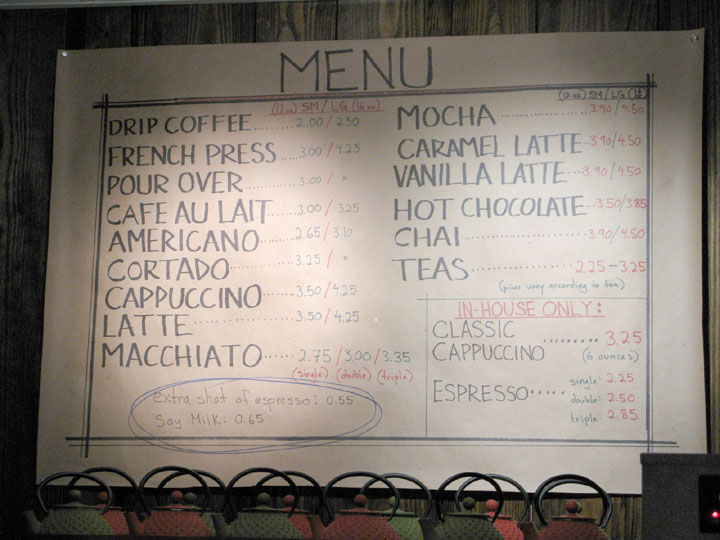 MENU
(12 oz) SM / LG (16 oz)
DRIP COFFEE.........2.00 / 2.50
FRENCH PRESS.....3.00 / 4.25
POUR OVER.........3.00 / x
CAFE AU LAIT.....3.00 / 3.25
AMERICANO.......2.65 / 3.10
CORTADO.........3.25 / x
CAPPUCCINO.....3.50 / 4.25
LATTE.............3.50 / 4.25
MACCHIATO.....2.75 / 3.00 / 3.35
(single) (double) (triple)
extra shot of espresso: 0.55
Soy Milk: 0.65
(12 oz) SM / LG (16
MOCHA.............3.90 / 4.50
CARAMEL LATTE...3.90 / 4.50
VANILLA LATTE....3.90 / 4.50
HOT CHOCOLATE...3.50 / 3.85
CHAI................3.90 / 4.50
TEAS...............2.25 - 3.25
(prices vary according to tea)
IN-HOUSE ONLY:
CLASSIC
CAPPUCCINO ......... 3.25
(6 ounces)
ESPRESSO..... single: 2.25
double: 2.50
triple: 2.85